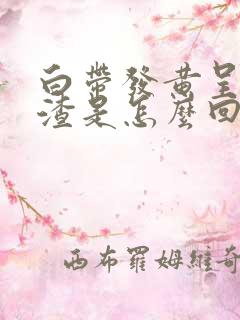 白帶發黄呈
渣是怎麼回
西布羅姆維奇